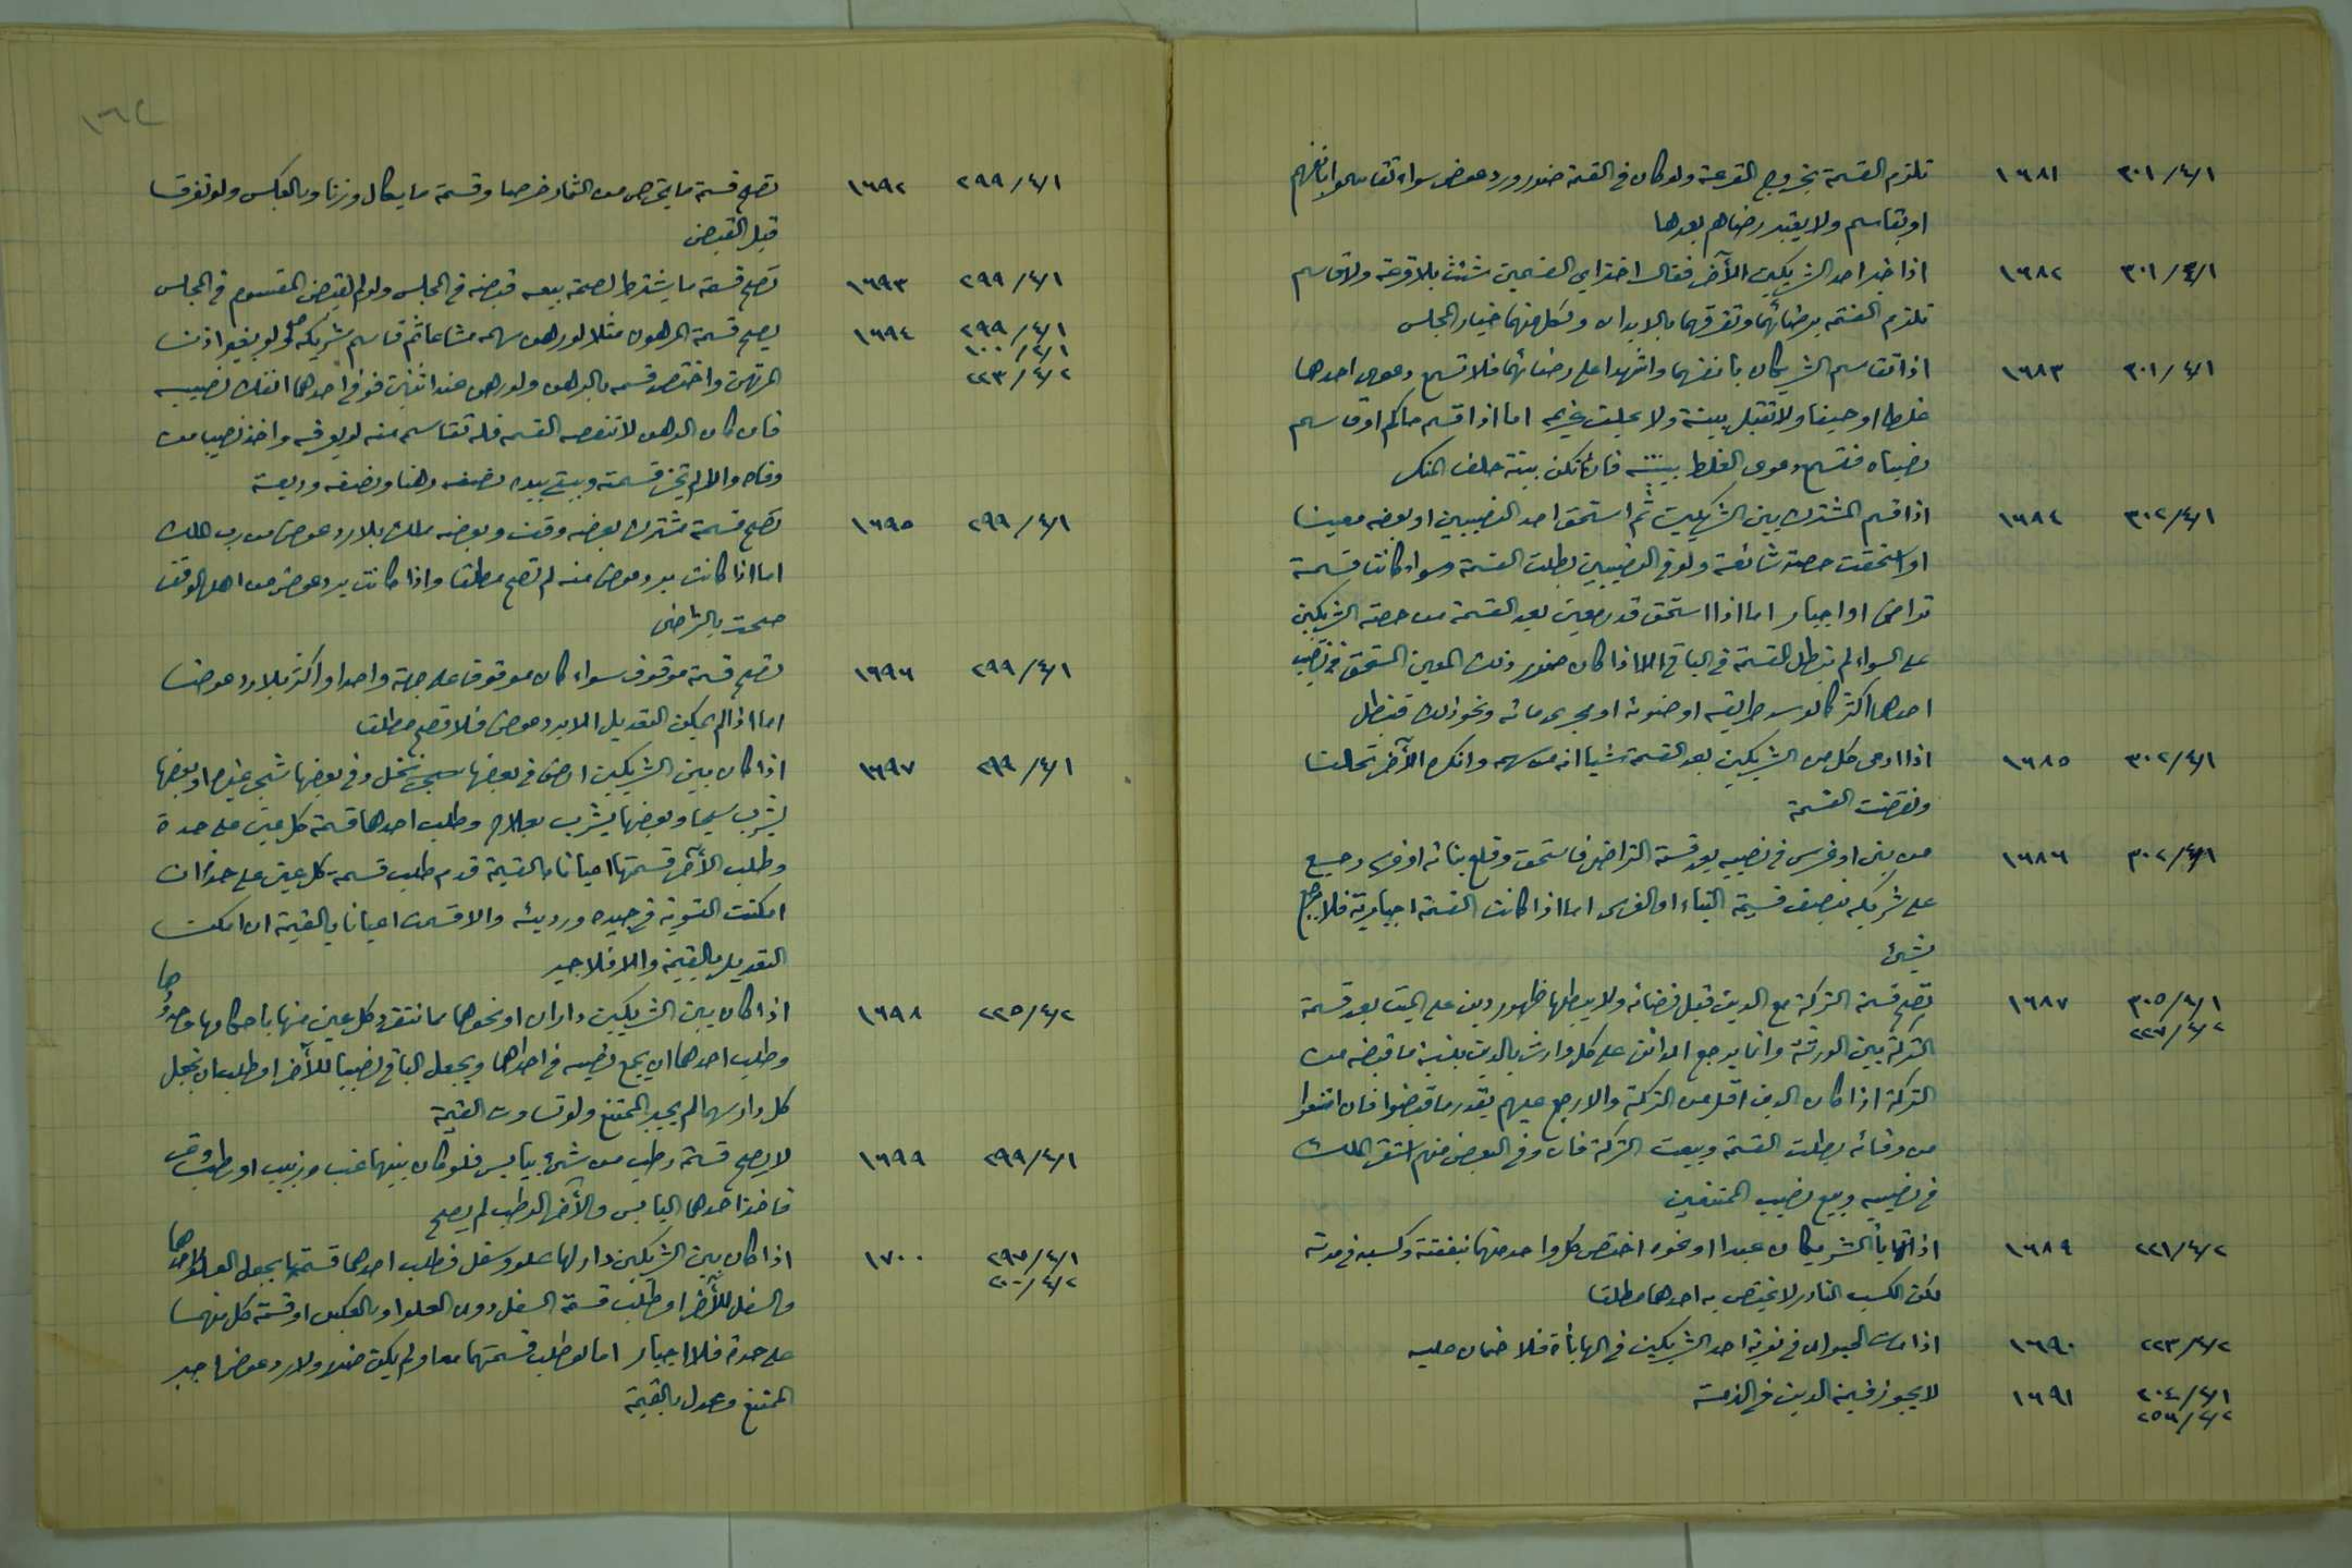 ٣٠١/٤/١ ١٦٨١ تلزم القسمة بخروج القرعة ولو كان في القسمة ضرر ورد عوض سواء تقاسموا بانفسهم
او بقاسم ولا يعتبر رضاهم بعدها
٣٠١/٤/١ ١٦٨٢ اذا خير احد الشريكين الآخر فقال اختر اي القسمين شئت بلا قرعة ولا قاسم
تلزم القسمة برضائهما وتفرقهما بالابدان ولكل منهما خيار المجلس
٣٠١/٤/١ ١٦٨٣ اذا تقاسم الشريكان بانفسهما واشهدا على رضائهما فلا تسمع دعوى احدهما
غلطا او حيفا ولا تقبل بينة ولا يحلف غريمه اما اذا قسم حاكم او قاسم
نصباه فتسمع دعوى الغلط ببينة فان لم تكن بينة حلف المنكر
٣٠٢/٤/١ ١٦٨٤ اذا قسم المشترك بين الشريكين ثم استحق احد النصيبين او بعضه معينا
او استحقت حصة شائعة ولو في النصيبين بطلت القسمة سواء كانت قسمة
تراضي او اجبار اما اذا استحق قدر معين بعد القسمة من حصة الشريكين
على السواء لم تبطل القسمة في الباقي الا اذا كان ضرر ذلك المعين المستحق في نصيب
احدهما اكثر كالو سد طريقه او ضوئه او مجرى مائه ونحو ذلك فتبطل
٣٠٢/٤/١ ١٦٨٥ اذا ادعى كل من الشريكين بعد القسمة شيئا انه من سهمه وانكره الآخر تحالفا
ونقضت القسمة
٣٠٢/٤/١ ١٦٨٦ من بنى او غرس في نصيبه بعد قسمة التراضي فاستحق وقلع بنائه او غرسه رجع
على شريكه بنصف قيمة البناء او الغرس اما اذا كانت القسمة اجبارية فلا يرجع
بشيء
٣٠٥/٤/١ ١٦٨٧ تصح قسمة التركة مع الدين قبل قضائه ولا يبطلها ظهور دين على الميت بعد قسمة
٢٢٧/٤/٢
التركة بين الورثة وانما يرجع الدائن على كل وارث بالدين بنسبة ما قبضه من
التركة اذا كان الدين اقل من التركة والا رجع عليهم بقدر ما قبضوا فان امتنعوا
من وفائه بطلت القسمة وبيعت التركة فان وفى البعض منهم استقر الملك
في نصيبه وبيع نصيب الممتنعين
٢٢١/٤/٢ ١٦٨٩ اذا تهايأ الشريكان عبدا او نحوه اختص كل واحد منهما بنفقته وكسبه في مدته
لكن الكسب النادر لا يختص به احدهما مطلقا
٢٢٣/٤/٢ ١٦٩٠ اذا مات الحيوان في نوبة احد الشريكين في المهايأة فلا ضمان عليه
٢٠٤/٤/١ ١٦٩١ لا يجوز قسمة الدين في الذمة
٢٥٦/٢/٢
١٦٢
٢٩٩/٤/١ ١٦٩٢ تصح قسمة ما يخرص من الثمار خرصا وقسمة ما يكال وزنا وبالعكس ولو تفرقا
قبل القبض
٢٩٩/٤/١ ١٦٩٣ تصح قسمة ما يشترط لصحة بيعه قبضه في المجلس ولو لم يقبض المقسوم في المجلس
٢٩٩/٤/١ ١٦٩٤ يصح قسمة المرهون مثلا لو رهن سهمه مشاعا ثم قاسم شريكه صح ولو بغير اذن
١٠٠/٢/١
٢٢٣/٤/٢ المرتهن واختص قسمه بالرهن ولو رهن عند اثنين فوفى احدهما انفك نصيبه
فان كان الرهن لا تنقصه القسمة فله تقاسم منه لو يوفه واخذ نصيبا من
وفاه والا لم تجز قسمته ويبقى بيده نصفه رهنا ونصفه وديعة
٢٩٩/٤/١ ١٦٩٥ تصح قسمة مشترك بعضه وقف وبعضه ملك بلا رد عوض من رب الملك
اما اذا كانت برد عوض منه لم تصح مطلقا واذا كانت برد عوض من اهل الوقف
صحت بالتراضي
٢٩٩/٤/١ ١٦٩٦ تصح قسمة موقوف سواء كان موقوف على جهة واحدا او اكثر بلا رد عوض
اما اذا لم يمكن التعديل الا برد عوض فلا تصح مطلقا
٢٩٩/٤/١ ١٦٩٧ اذا كان بين الشريكين ارض في بعضها نخل وفي بعضها شجر غيره او بعضها
يشرب سيحا وبعضها يشرب بعلاج وطلب احدهما قسمة كل عين على حدة
وطلب الآخر قسمتها اعيانا بالقيمة قدم طلب قسمة كل عين على حدة ان
امكنت التسوية في جيده ورديئه والا قسمت اعيانا بالقيمة ان امكنت
التعديل بالقيمة والا فلا جبر
٢٢٥/٤/٢ ١٦٩٨ اذا كان بين الشريكين داران او نحوهما مما تنفرد كل عين منها باحكامها وحدودها
وطلب احدهما ان يجمع نصيبه في احداهما ويجعل الباقي نصيبا للآخر او طلب ان تجعل
كل دار سهما لم يجبر الممتنع ولو تساوت القيمة
٢٩٩/٤/١ ١٦٩٩ لا يصح قسمة رطب من شيء بيابس فلو كان بينهما عنب وزبيب او رطب وتمر
فاخذ احدهما اليابس والآخر الرطب لم يصح
٢٩٧/٤/١ ١٧٠٠ اذا كان بين الشريكين دار لها علو وسفل فطلب احدهما قسمتها بجعل العلو لاحدهما
٢٠٠/٤/٢
والسفل للآخر او طلب قسمة السفل دون العلو او بالعكس او قسمة كل منهما
على حدة فلا اجبار اما لو طلب قسمتهما معا ولم يكن ضرر ولا رد عوض اجبر
الممتنع وعدل بالقيمة